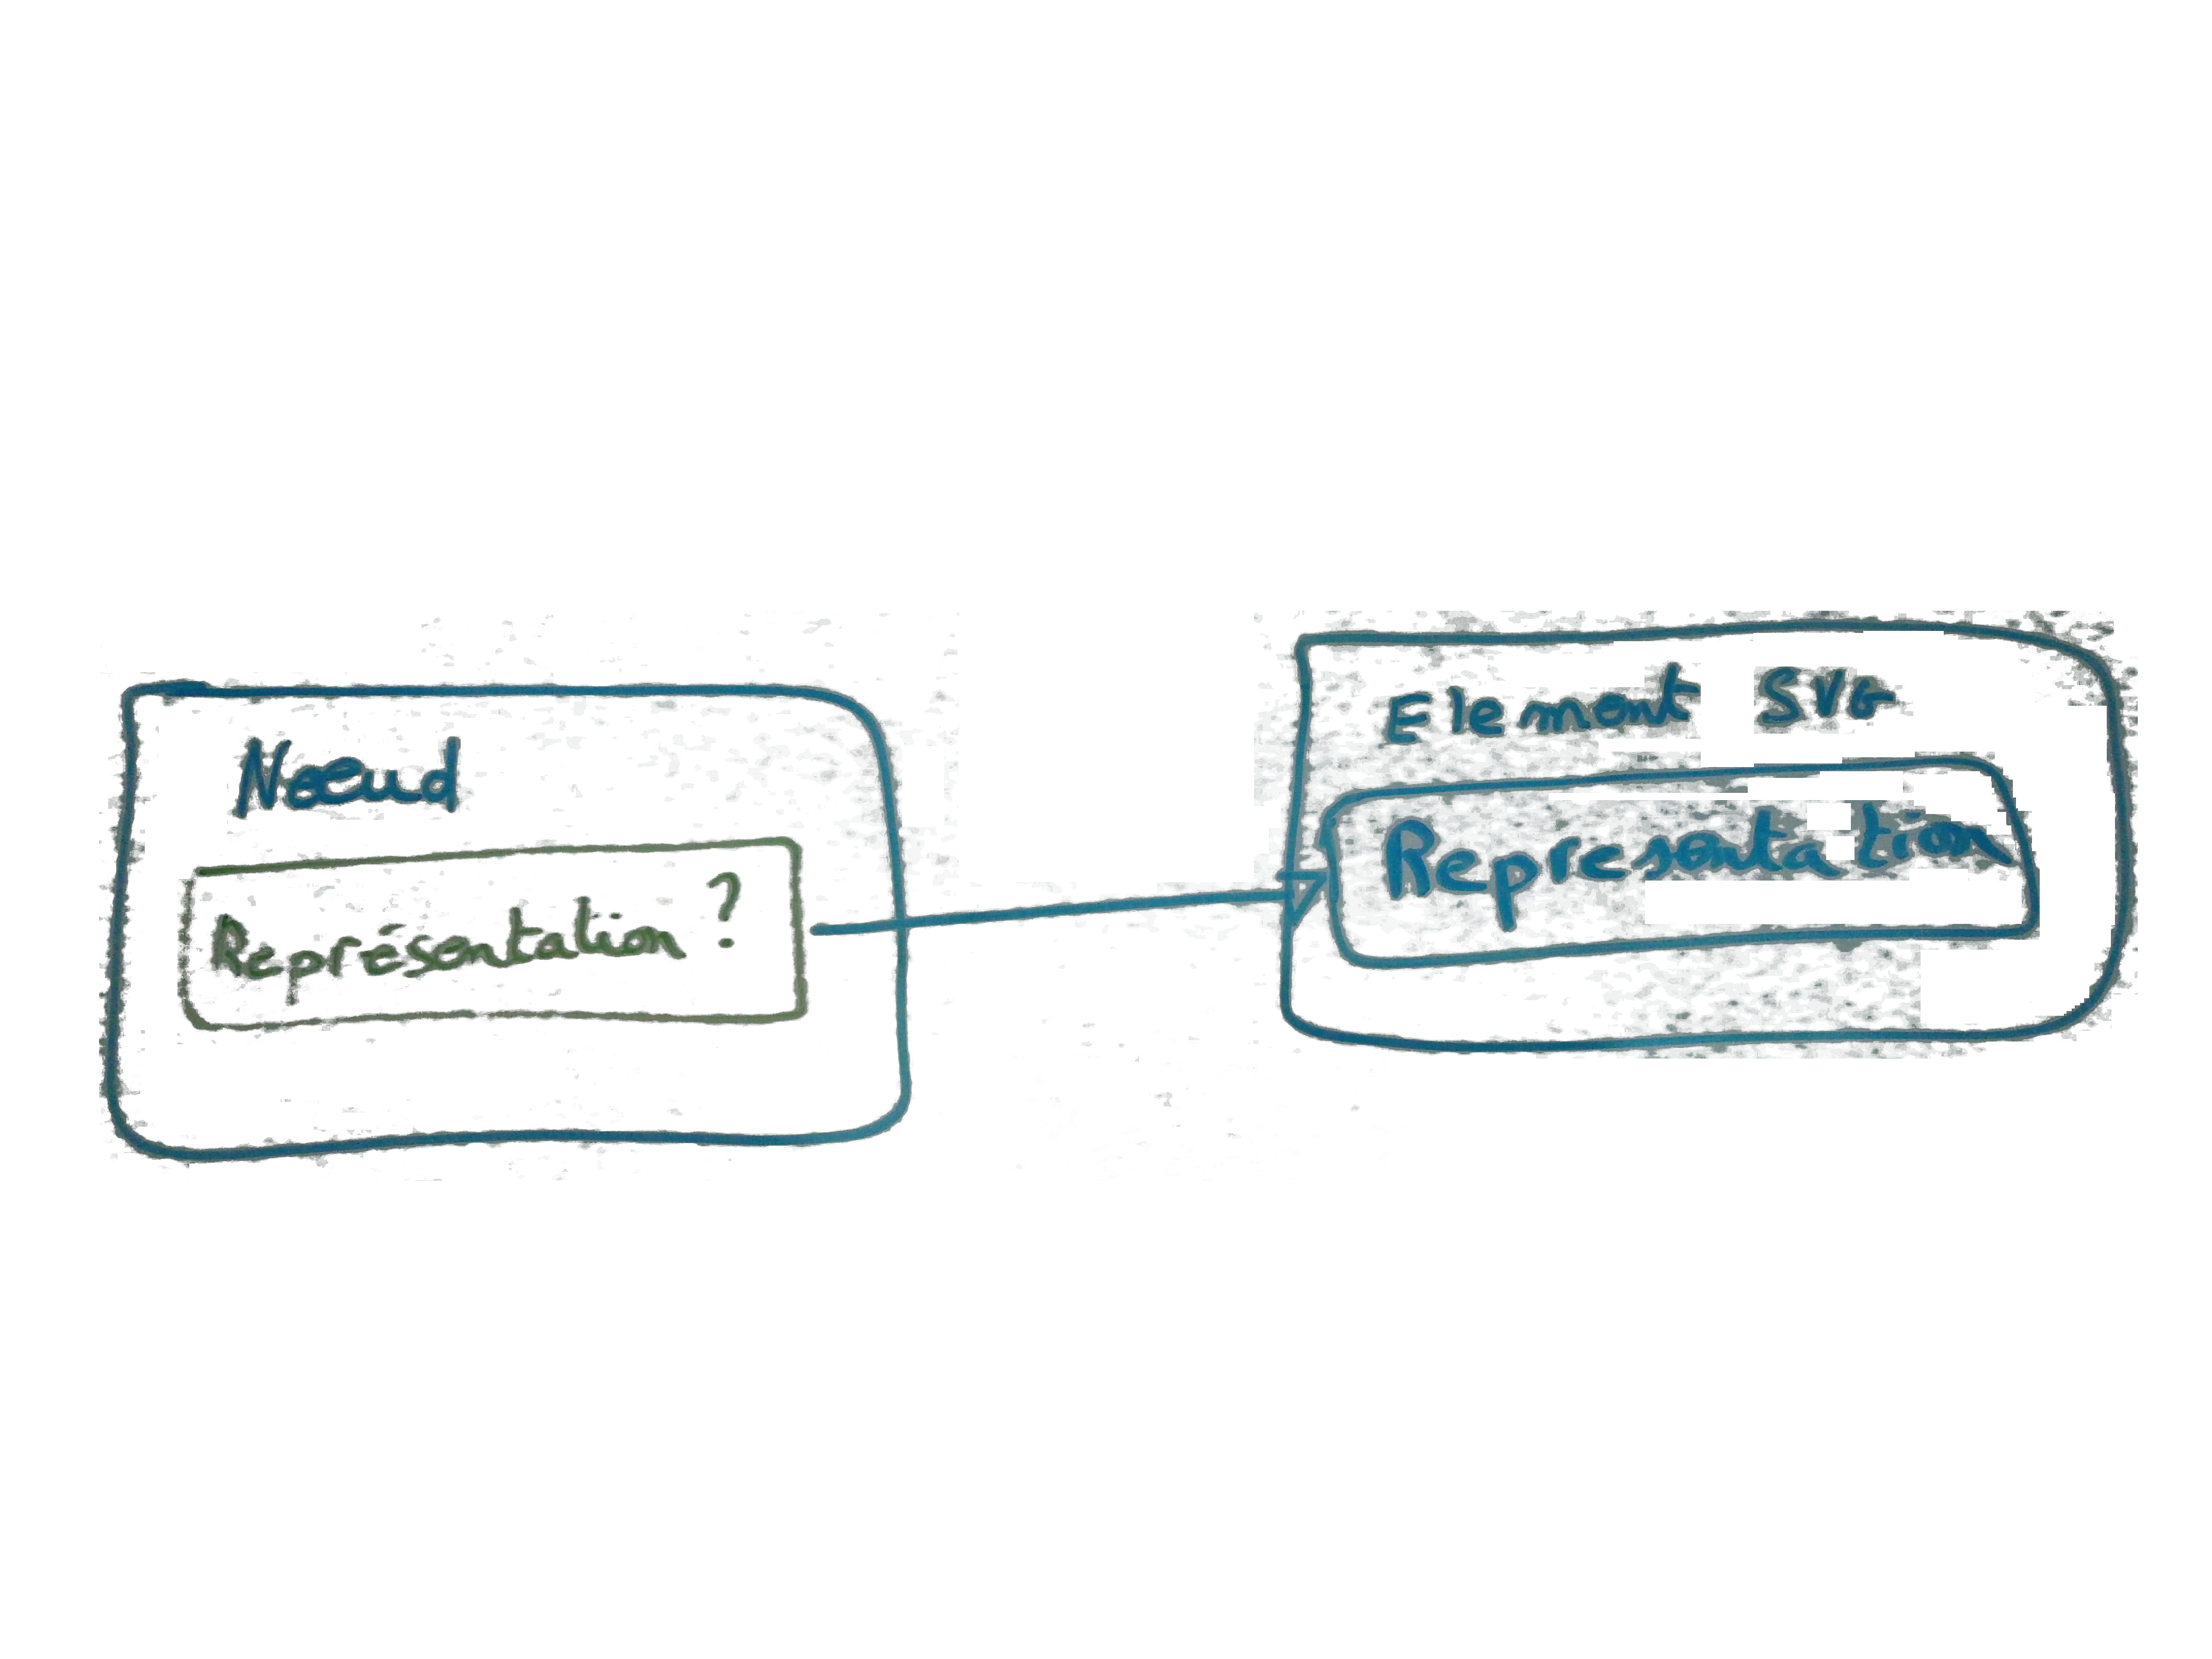 Nœud
Représentation ?
Element SVG
Representation